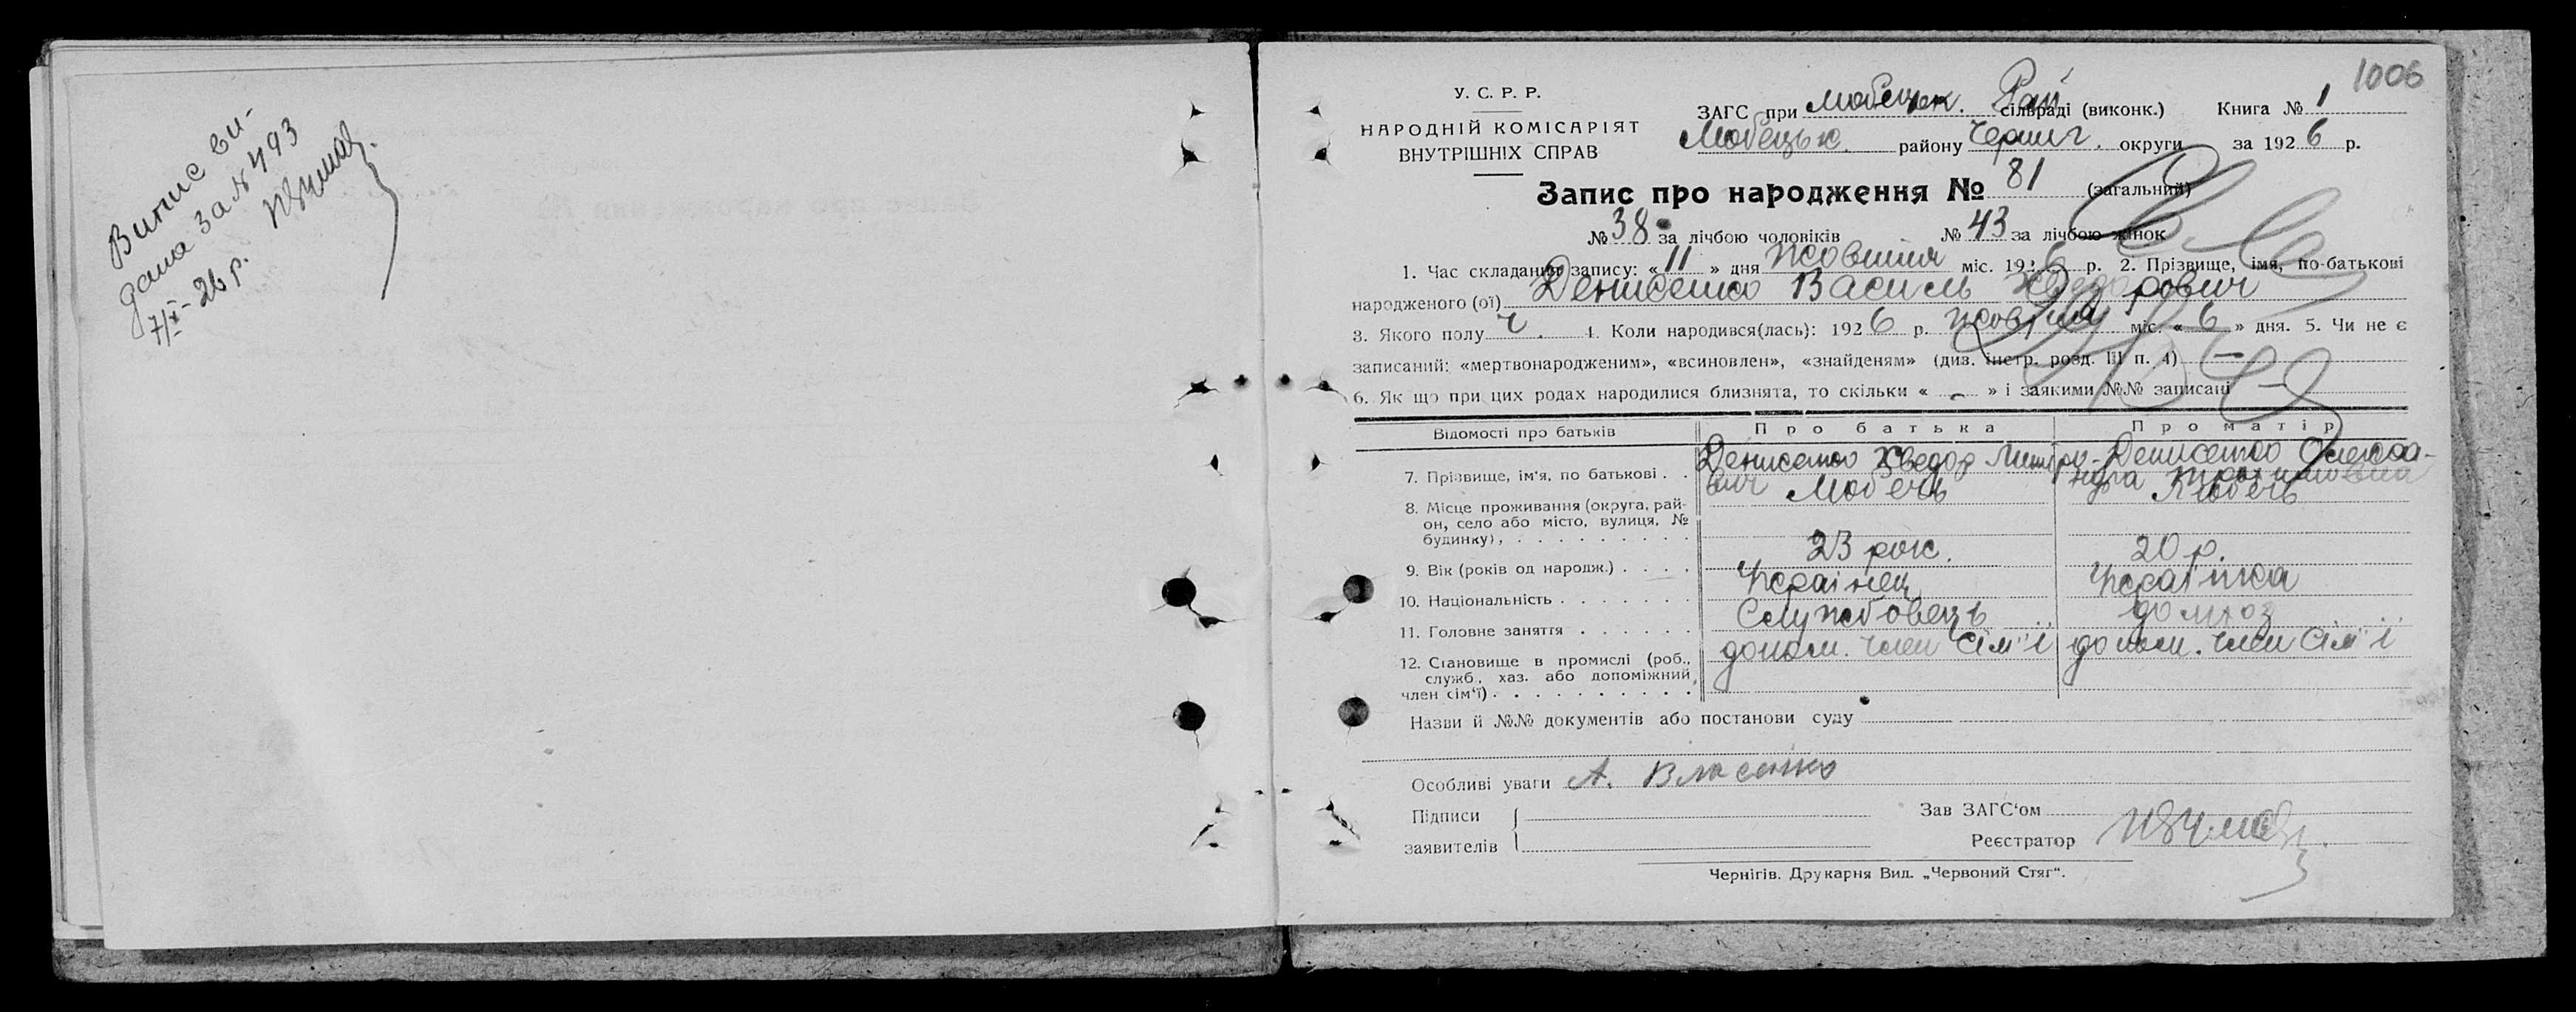 Випис ви-
дана за № 493
7/X-26 р.
1006
У. С. Р. Р.
НАРОДНІЙ КОМІСАРІЯТ
ВНУТРІШНІХ СПРАВ
ЗАГС при Любецьк. Рай сільраді (виконк.) Книга № 1
Любецьк. району Черниг. округи за 1926 р.
Запис про народження № 81 (загальний)
№ 38 за лічбою чоловіків № 43 за лічбою жінок
1. Час складання запису: «11» дня Жовтня міс. 1926 р. 2. Прізвище, імя, по-батькові
народженого (ої) Денисенко Василь Хведорович
3. Якого полу ч. 4. Коли народився(лась): 1926 р. Жовтня міс. «6» дня. 5. Чи не є
записаний: «мертвонародженим», «всиновлен», «знайденям» (див. інстр. розд. III п. 4) —
6. Як що при цих родах народилися близнята, то скільки « - » і заякими №№ записані -
Відомості про батьків Про батька Про матір
7. Прізвище, ім'я, по батькові . . Денисенко Хведор Митро- Денисенко Олекса-
вич Любеч ндра Любеч
8. Місце проживання (округа, рай-
он, село або місто, вулиця, №
будинку), . . . . . . . . .
9. Вік (років од народж.) . . . . 23 рок. 20 р.
10. Національність . . . . . . . Українец Українка
11. Головне заняття . . . . . . Службовець домхоз
12. Становище в промислі (роб., допом. член сім'ї допом. член сім'ї
служб., хаз. або допоміжний
член сім'ї) . . . . . . . . . .
Назви й №№ документів або постанови суду
Особливі уваги А. Власенко
Підписи
заявителів
Зав ЗАГС'ом
Реєстратор
Чернігів. Друкарня Вид. „Червоний Стяг“.